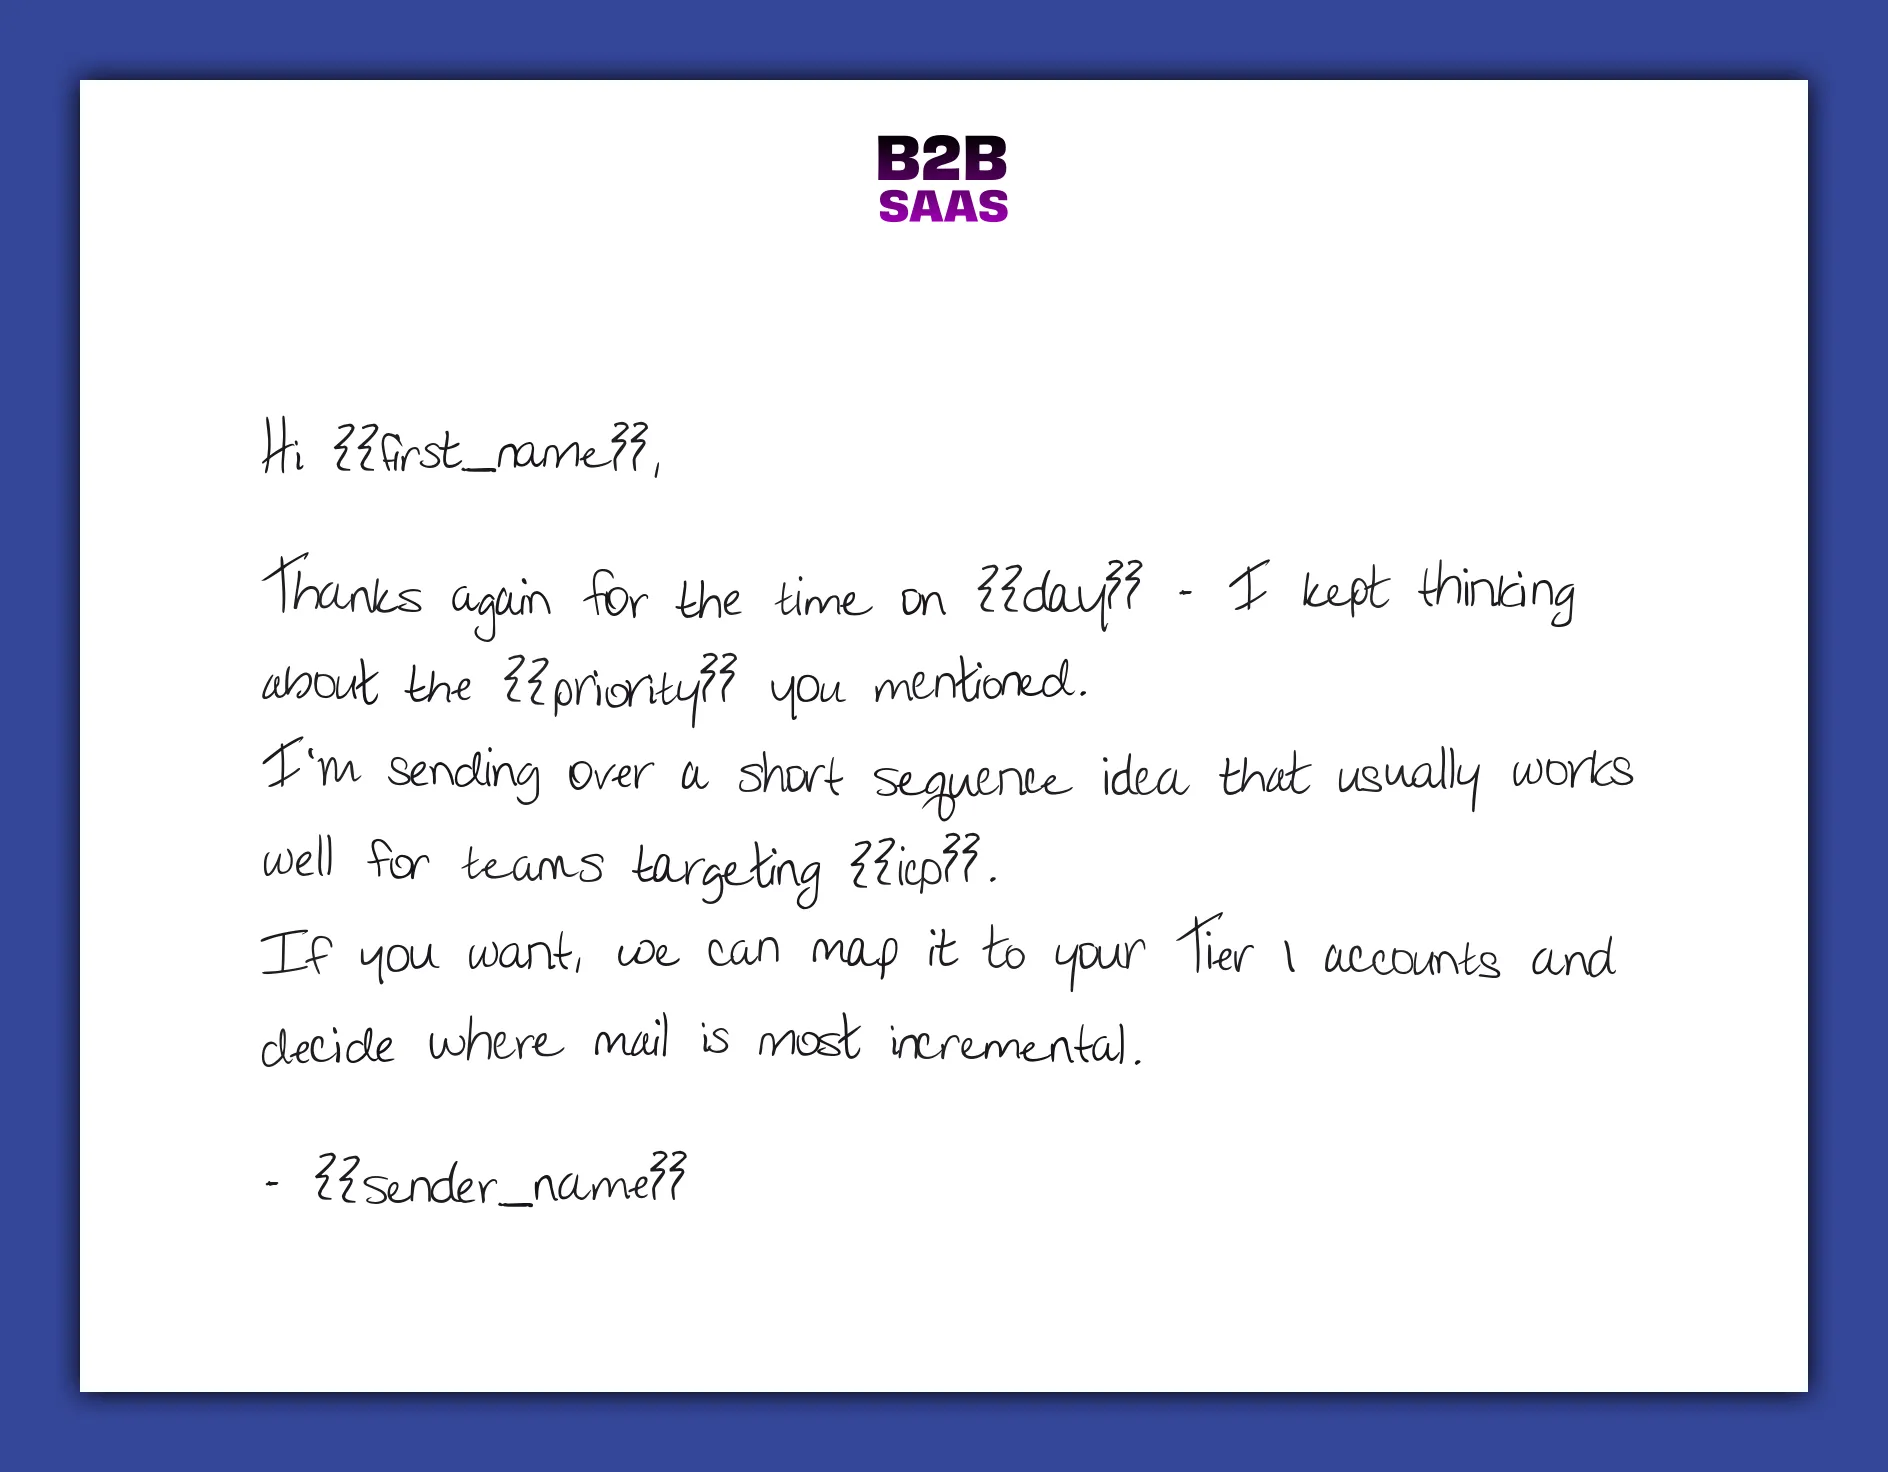 B2B
SAAS
Hi {{first_name}},
Thanks again for the time on {{day}} - I kept thinking
about the {{priority}} you mentioned.
I'm sending over a short sequence idea that usually works
well for teams targeting {{icp}}.
If you want, we can map it to your Tier 1 accounts and
decide where mail is most incremental.
- {{sender_name}}